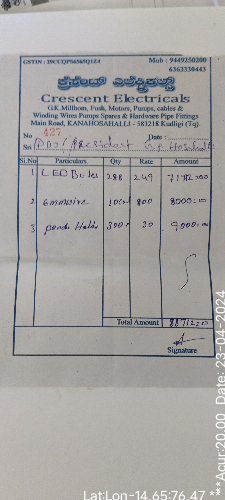 GSTIN : 29CCQPS6565Q1Z4 Mob : 9449250200
6363330443
ಕ್ರೆಸೆಂಟ್ ಎಲೆಕ್ಟ್ರಿಕಲ್ಸ್
Crescent Electricals
GK.Millborn, Fush, Motors, Pumps, cables &
Winding Wires Pumps Spares & Hardware Pipe Fittings
Main Road, KANAHOSAHALLI - 583218 Kudligi (Tq).
No 427 Date :
Sri PDO/President G.P Hosahalli
Sl.No Particulars Qty Rate Amount
1 LED Bulbs 288 249 71712=00
2 6mm wire 10 800 8000=00
3 Holder 300 30 9,000=00
Total Amount 88712=00
Signature
Lat:Lon-14.65:76.47 ***Acur:20.00 Date: 23-04-2024